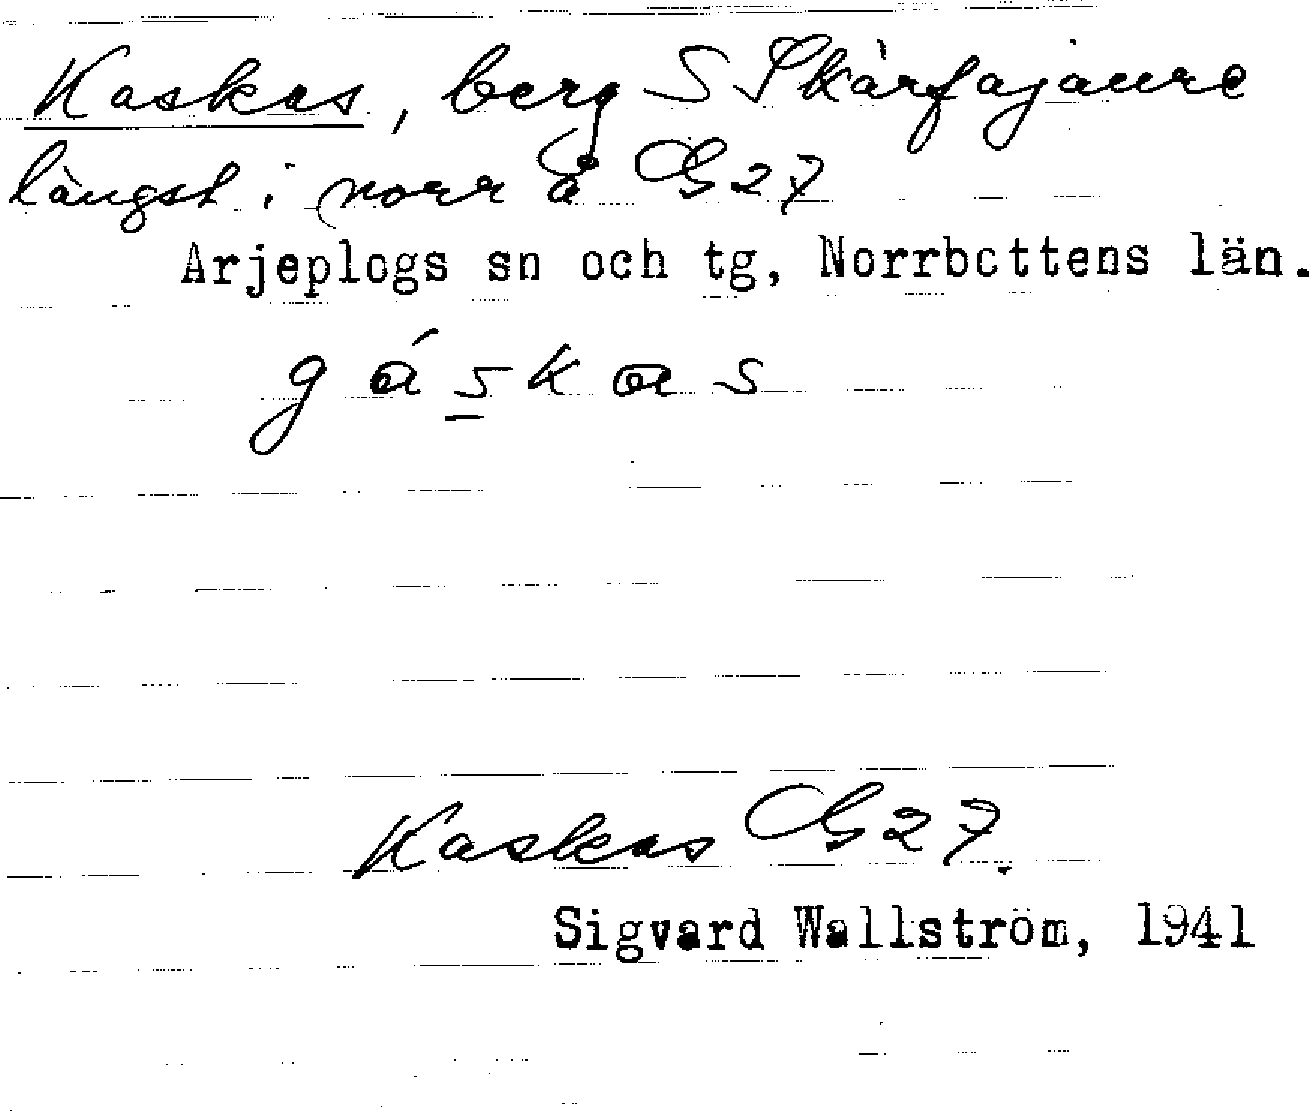 Kaskas, berg S Skärfajaure
längst i norr å GS 27
Arjeplogs sn och tg, Norrbottens län.
gáskas
Kaskas GS 27.
Sigvard Wallström, 1941